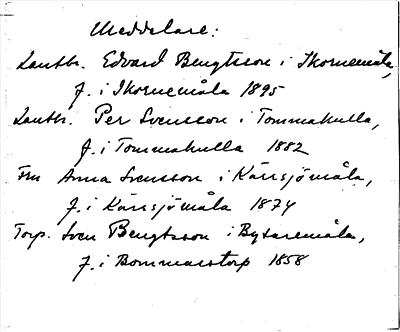 Meddelare:
Lantbr. Edvard Bengtsson i Ikornemåla,
f. i Ikornemåla 1895
Lantbr. Per Svensson i Tommakulla,
f. i Tommakulla 1882
Fru Anna Svensson i Kärrsjömåla,
f. i Kärrsjömåla 1874
Torp. Sven Bengtsson i Bytaremåla,
f. i Bommarstorp 1858